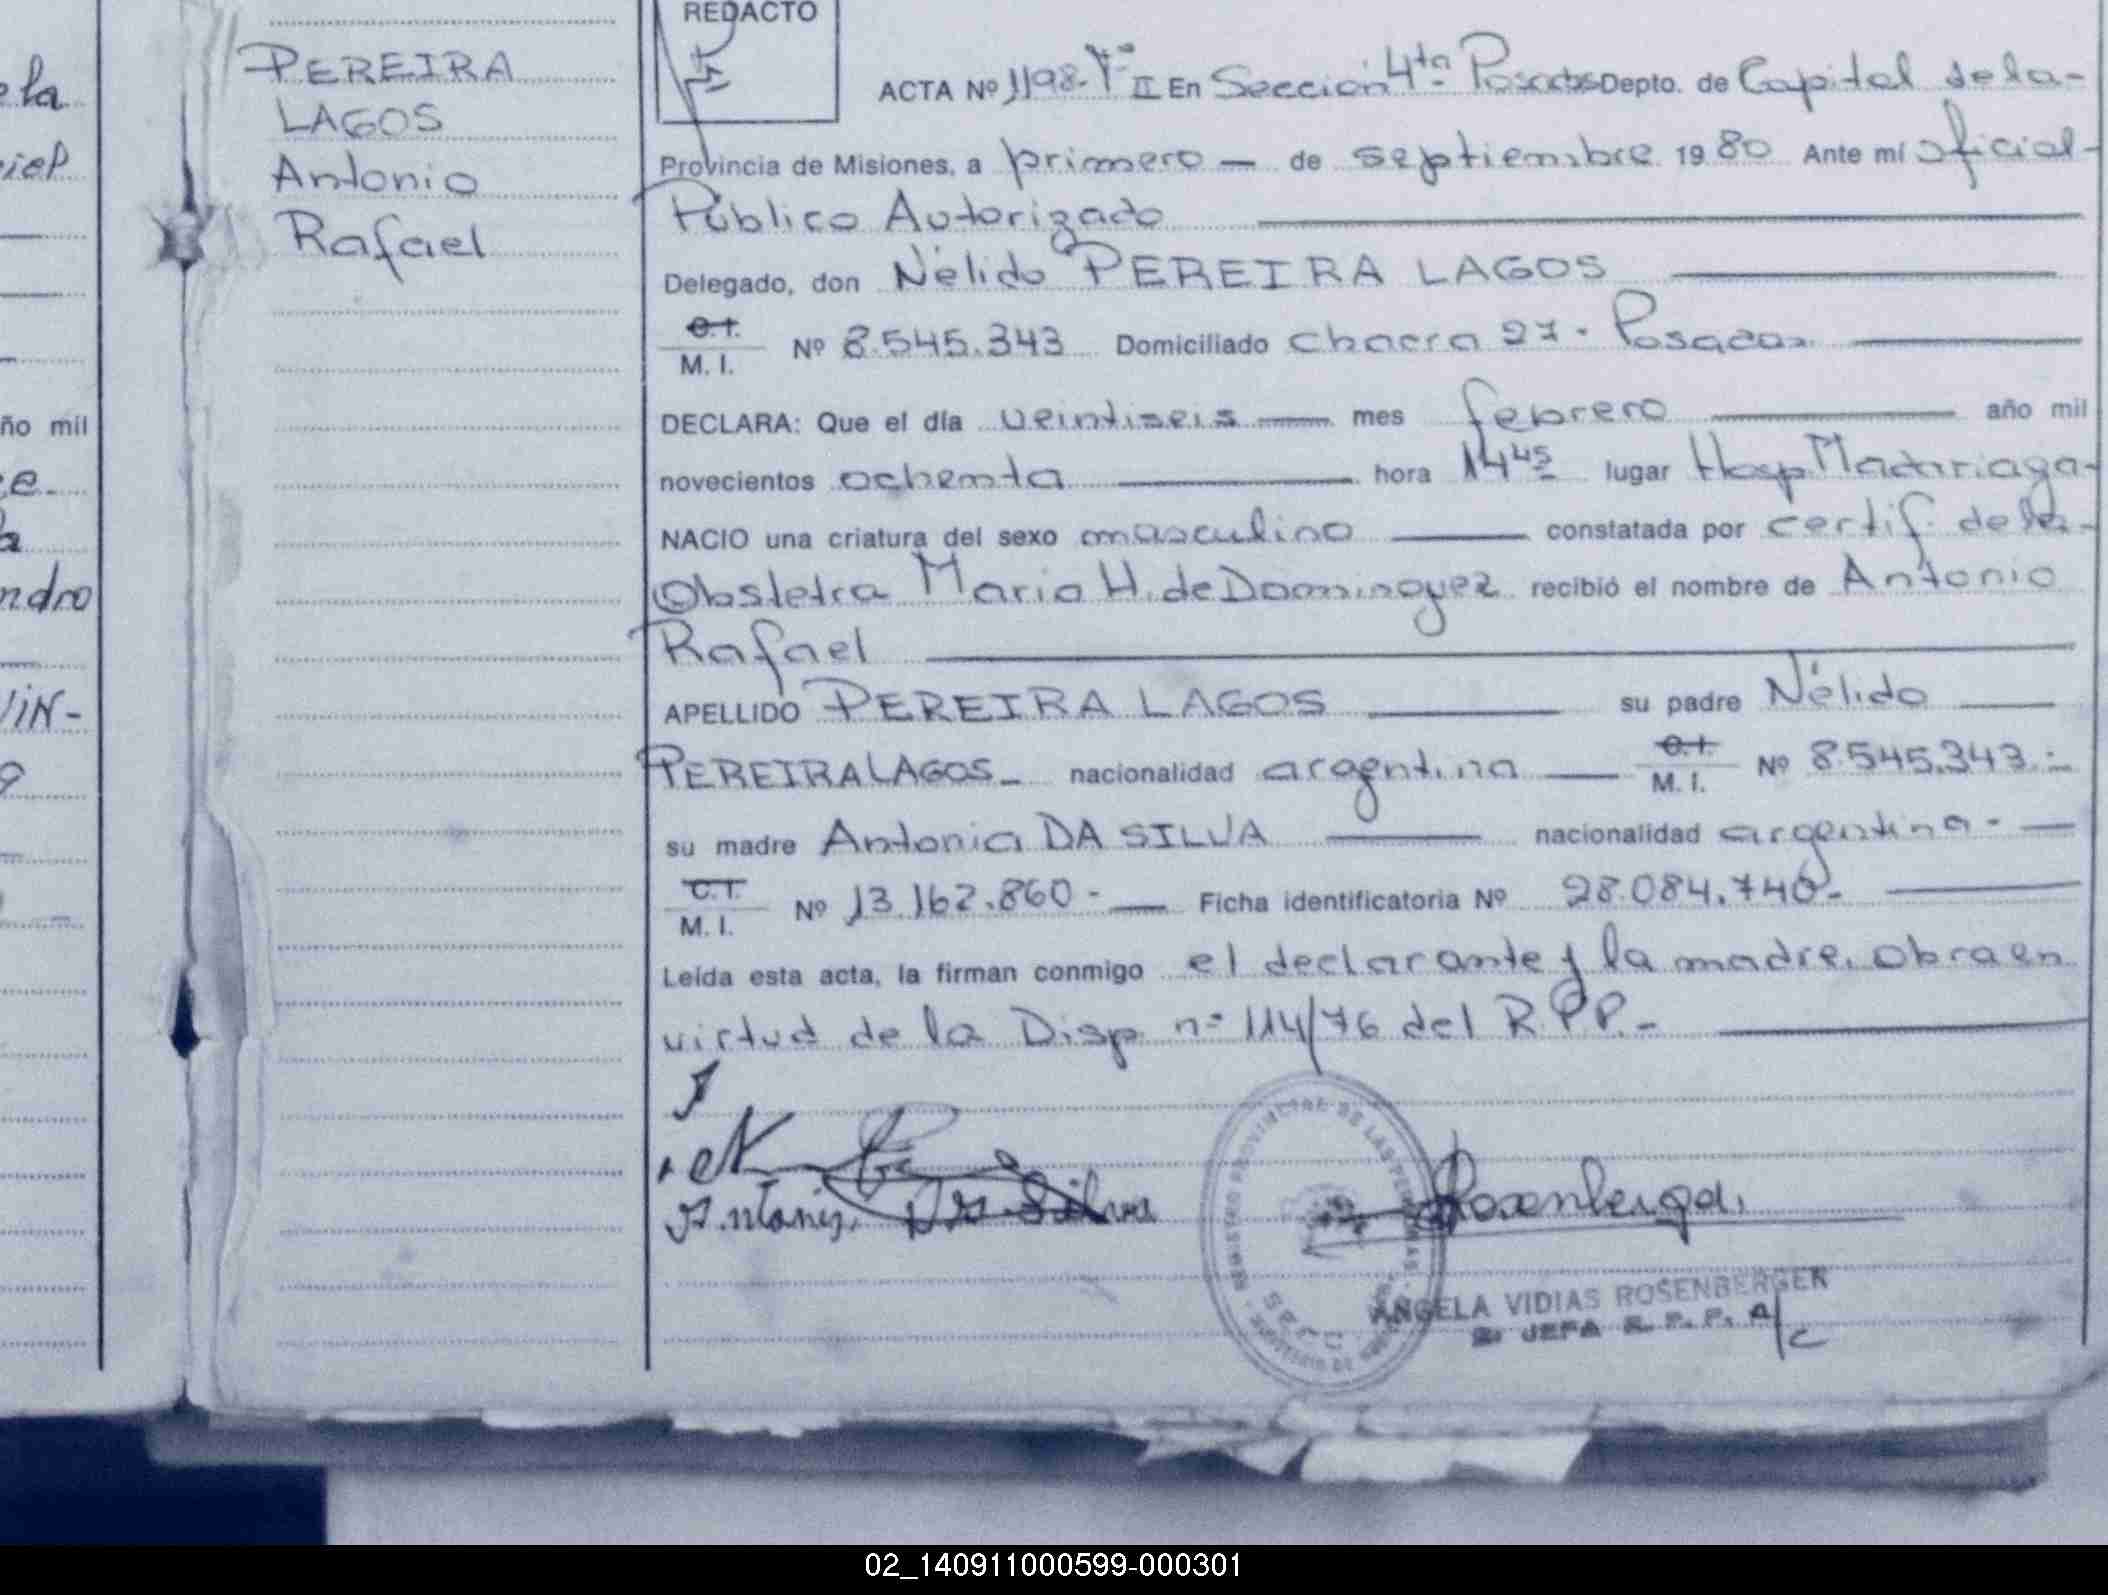 PEREIRA
LAGOS
Antonio
Rafael
REDACTO
ACTA Nº 1198. Tº II En Sección 4ta Posadas Depto. de Capital de la-
Provincia de Misiones, a primero — de septiembre 1980 Ante mí oficial-
Público Autorizado
Delegado, don Nélido PEREIRA LAGOS
C.I.
M. I. Nº 8.545.343 Domiciliado chacra 27 - Posadas
DECLARA: Que el día veintiseis — mes febrero — año mil
novecientos ochenta — hora 14 45 lugar Hosp Madariaga-
NACIO una criatura del sexo masculino — constatada por certif. de la-
Obstetra Maria H. de Dominguez recibió el nombre de Antonio
Rafael
APELLIDO PEREIRA LAGOS — su padre Nélido —
PEREIRA LAGOS — nacionalidad argentina — C.I.
M. I. Nº 8.545.343.-
su madre Antonia DA SILVA — nacionalidad argentina - —
C.I.
M. I. Nº 13.162.860 - — Ficha identificatoria Nº 28.084.740-
Leída esta acta, la firman conmigo el declarante y la madre. obra en
virtud de la Disp. nº 114/76 del R.P.P.-
Antonia Da Silva
Rosenberger
REGISTRO PROVINCIAL DE LAS PERSONAS
ANGELA VIDIAS ROSENBERGER
JEFA R. P. P. A/C
ela
iel
ño mil
e
ndro
VIN-
02_140911000599-000301